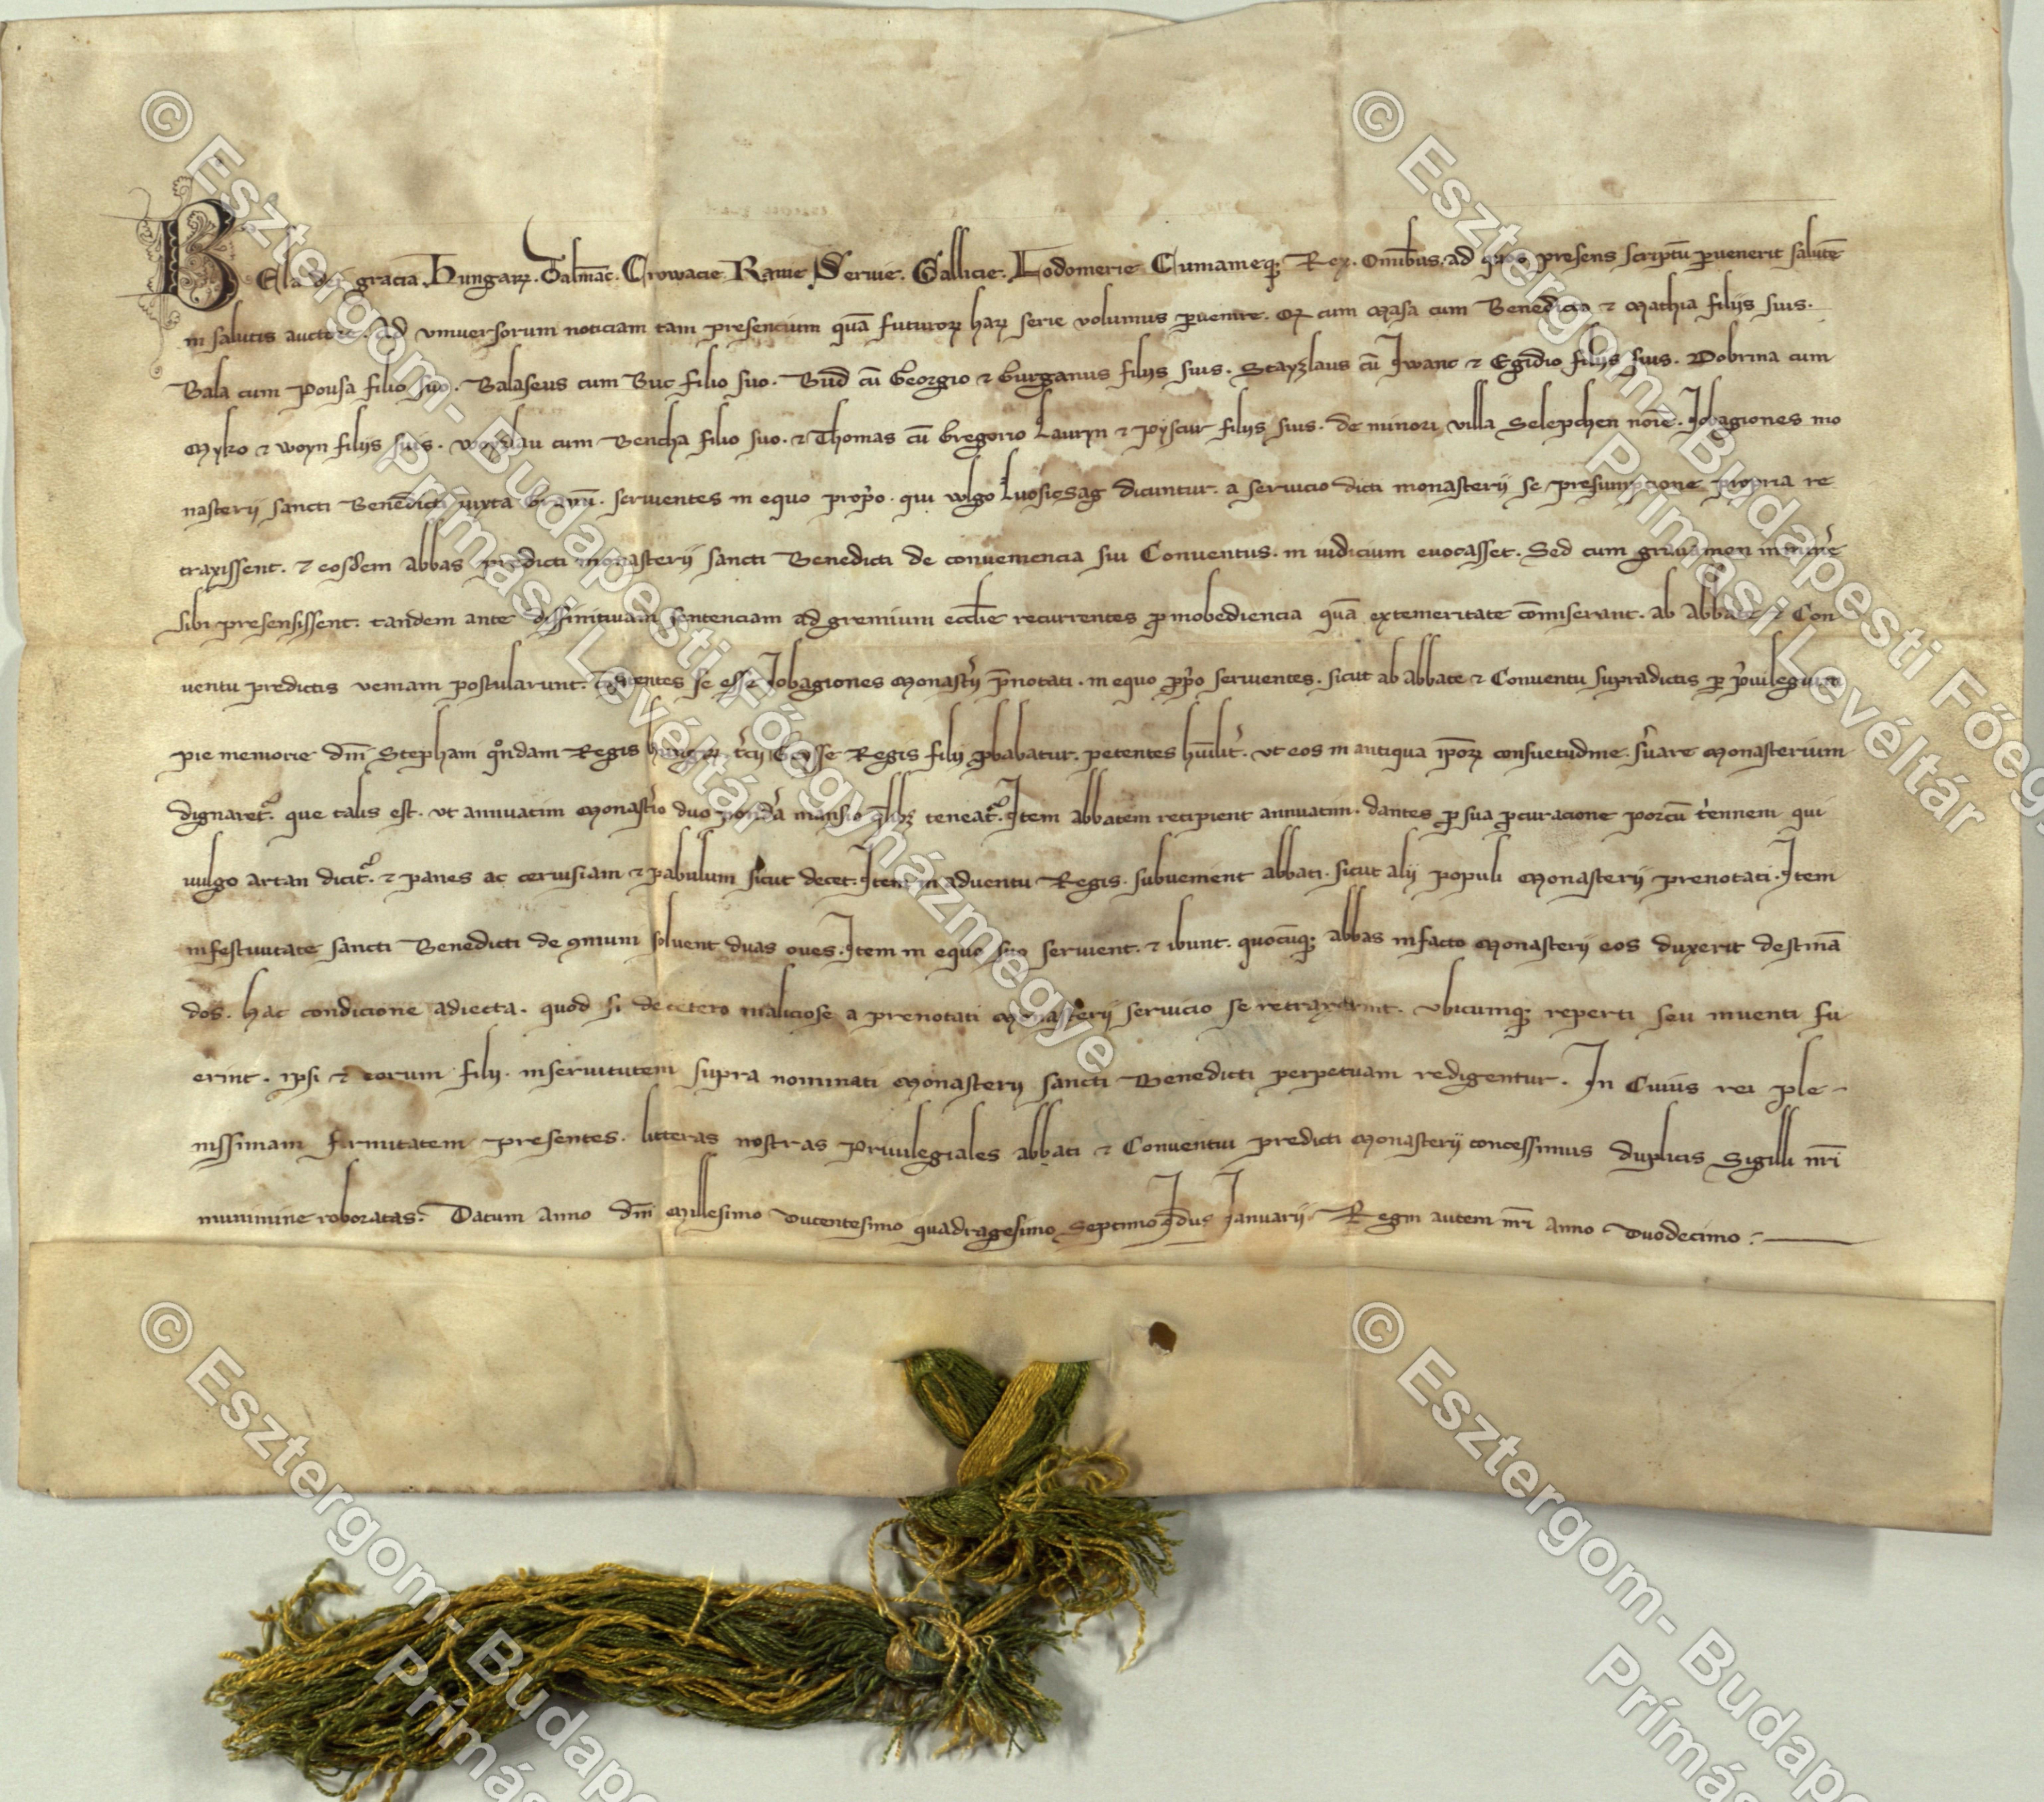 Bela dei gracia Hungarꝝ. Dalmac̄. Crowacie Rame Servie. Gallicie. Lodomerie Cumanieq; Rex. Omībus ad quos presens scriptū ꝑvenerit salutē
in salutis auctore. Ad universorum noticiam tam presencium quā futurorꝝ harꝝ serie volumus ꝑvenire. cum Masa cum Benedicto ⁊ Mathia filijs suis.
Bala cum Pousa filio suo. Balaseus cum Buc filio suo. Bud cū Georgio ⁊ Gurganus filijs suis. Stayzlaus cū Iwanc ⁊ Egidio filijs suis. Dobrina cum
Myko ⁊ Woyn filijs suis. Woyzlau cum Bencha filio suo. ⁊ Thomas cū Gregorio Lauryn ⁊ filijs suis. de minori villa Selepchen noīe. Iobagiones mo
nasterij sancti Benedicti iuxta Granū. servientes in equo prop̄o. qui vlgo Lvosicsag dicuntur. a servicio dicti monasterij se presumpcione propria re
traxissent. ⁊ eosdem abbas predicti monasterij sancti Benedicti de convenencia sui Conventus. in iudicium evocasset. Sed cum gravamen
sibi presensissent. tandem ante diffinitivam sentenciam ad gremium ecclīe recurrentes ꝓ inobediencia quā ex temeritate cōmiserant. ab Abbate ⁊ Con
ventu predictis veniam postularunt. se esse Iobagiones Monastȳ p̄notati. in equo ꝓp̄o servientes. sicut ab abbate ⁊ Conventu supradictis ꝑ p̄vilegium
pie memorie dn̄i Stephani qͦndam Regis Hungarꝝ. t̄cij Geysse Regis filij ꝓbabatur. petentes hūilit̄. ut eos in antiqua ip̄orꝝ consuetudine. s̄vare Monasterium
dignaret᷑. que talis est. ut annuatim Monast̄io duo pond̄a mansio q̄libꝫ teneat᷑. Item abbatem recipient annuatim. dantes ꝓ sua ꝓcuracione porcū t̄ennem qui
vulgo artan dicit᷑. ⁊ panes ac cervisiam ⁊ pabulum sicut decet. Item in adventu Regis. subvenient abbati. sicut alij populi Monasterij prenotati. Item
in festivitate sancti Benedicti de ꝯmuni solvent duas oves. Item in equo suo servient. ⁊ ibunt. quocūq; abbas in facto Monasterij eos duxerit destinā
dos. Hac condicione adiecta. quod si de cetero maliciose a prenotati Monasterij servicio se retraxerint. ubicumq; reperti seu inventi fu
erint. ipsi ⁊ eorum filij. in servitutem supra nominati Monasterij sancti Benedicti perpetuam redigentur. In Cuius rei ple-
nissimam firmitatem presentes. litteras nostras Privilegiales abbati ⁊ Conventui predicti Monasterij concessimus duplicis Sigilli nr̄i
munimine roboratas. Datum anno dn̄i Millesimo Ducentesimo quadragesimo Septimo Idus Ianuarij. Regni autem nr̄i anno Duodecimo.
© Esztergom- Budapesti Főegyházmegye
Prímási Levéltár
© Esztergom- Budapesti Főeg
Prímási Levéltár
© Esztergom- Budape
Prímás
© Esztergom- Budape
Prímás